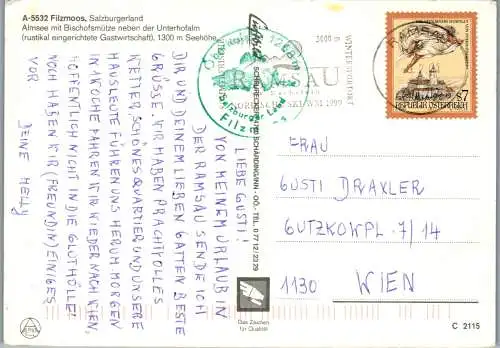 A-5532 Filzmoos, Salzburgerland
Almsee mit Bischofsmütze neben der Unterhofalm
(rustikal eingerichtete Gastwirtschaft), 1300 m Seehöhe
LIEBE GUSTI!
VON MEINEM URLAUB IN
DER RAMSAU SENDE ICH
DIR UND DEINEM LIEBEN GATTEN BESTE
GRÜSSE. WIR HABEN PRACHTVOLLES
WETTER SCHÖNES QUARTIER UND UNSERE
HAUSLEUTE FÜHREN UNS HERUM. MORGEN
IN 1 WOCHE FAHREN WIR WIEDER NACH WIEN,
HOFFENTLICH NICHT IN DIE GLUTHÖLLE!
NOCH HABEN WIR (FREUNDIN) EINIGES
VOR!
DEINE HELLY
1286m
Salzburger Land
Filzmoos
3000 m
WINTERSPORTORT
RAMSAU
NORDISCHE SKI-WM 1999
RAMSAU
REPUBLIK ÖSTERREICH
S7
SCHÄRDING/INN - OÖ. TEL. 0 77 12 / 23 29
Das Zeichen
für Qualität
FRAU
GUSTI DRAXLER
GUTZKOWPL. 7/14
1130 WIEN
C 2115